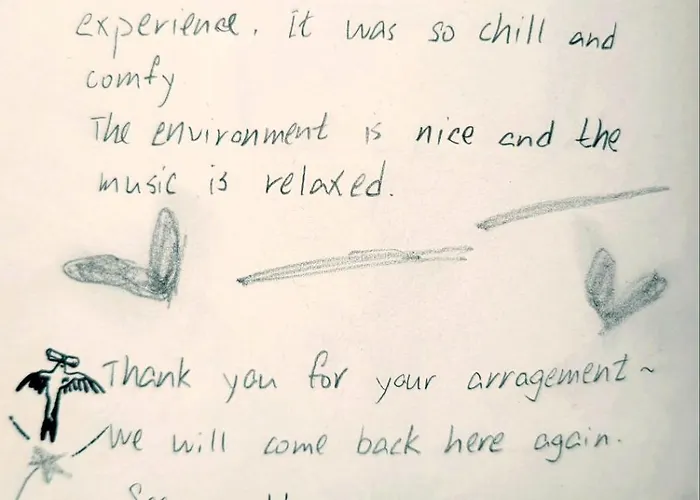 experience. It was so chill and
comfy
The environment is nice and the
music is relaxed.
Thank you for your arragement~
We will come back here again.